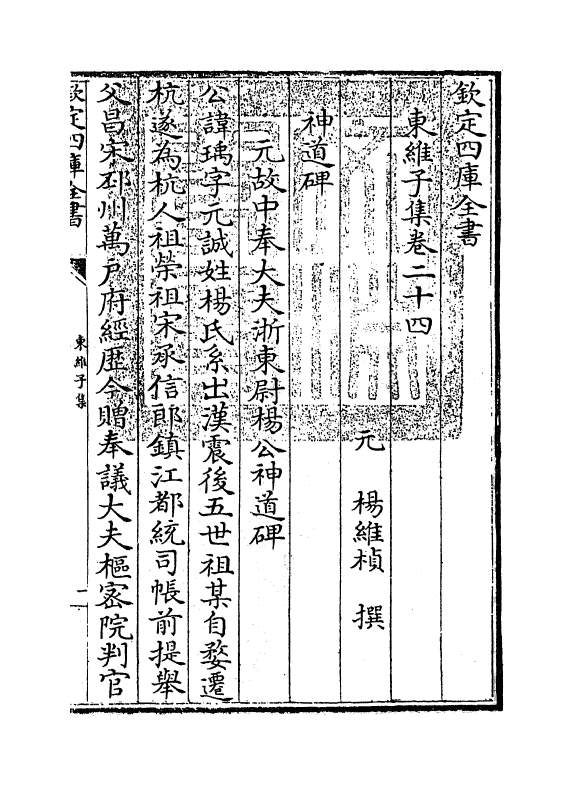 欽定四庫全書
東維子集卷二十四
元 楊維楨 撰
神道碑
元故中奉大夫浙東尉楊公神道碑
公諱瑀字元誠姓楊氏系出漢震後五世祖某自婺遷
杭遂為杭人祖榮祖宋承信郎鎮江都統司帳前提舉
父昌宋邳州萬戶府經歴今贈奉議大夫樞密院判官
欽定四庫全書
東維子集
一